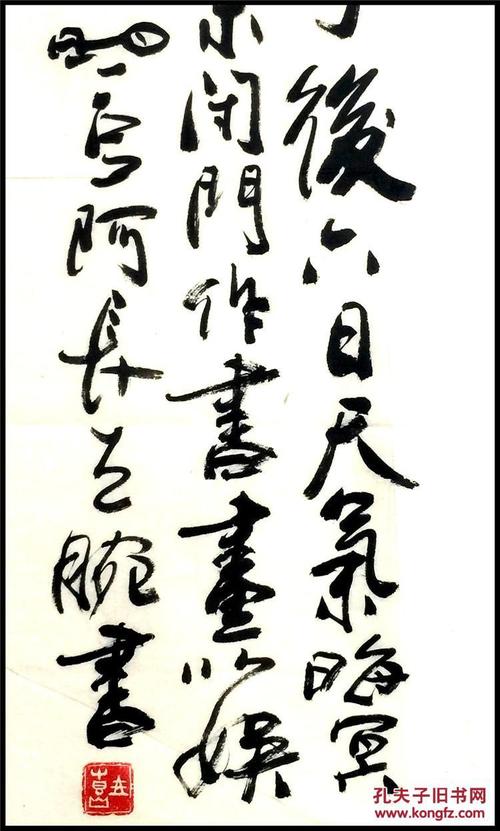 後六日天氣晦冥
閉門作書畫以娛
阿長左腕書
孔夫子旧书网
www.kongfz.com